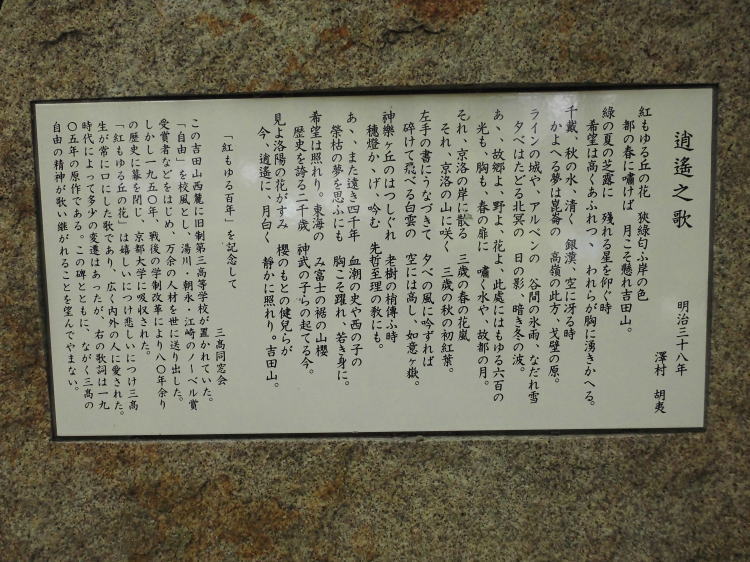 逍遙之歌
明治三十八年
澤村 胡夷
紅もゆる丘の花 狹緑匂ふ岸の色
都の春に嘯けば 月こそ懸れ吉田山。
緑の夏の芝露に 殘れる星を仰ぐ時
希望は高くあふれつゝ われらが胸に湧きかへる。
千載、秋の水、清く 銀漢、空に冴る時
かよへる夢は崑崙の 高嶺の此方、戈壁の原。
ラインの城や、アルペンの 谷間の氷雨、なだれ雪
夕べはたどる北冥の 日の影、暗き冬の波。
あゝ、故郷よ、野よ、花よ、此處にはもゆる六百の
光も、胸も、春の扉に 嘯く水や、故都の月。
それ、京洛の岸に散る 三歳の春の花嵐
それ、京洛の山に咲く 三歳の秋の初紅葉。
左手の書にうなづきて 夕べの風に吟ずれば
碎けて飛べる白雲の 空には高し、如意ヶ嶽。
神樂ヶ丘のはつしぐれ 老樹の梢傳ふ時
穗燈かゝげ、吟む 先哲至理の教にも。
あゝ、また遠き四千年 血潮の史や西の子の
榮枯の夢を思ふにも 胸こそ躍れ、若き身に。
希望は照れり。東海の み富士の裾の山櫻
歴史を誇る二千歳 神武の子らの起てる今。
見よ洛陽の花がすみ 櫻のもとの健兒らが
今、逍遙に、月白く 靜かに照れり。吉田山。
「紅もゆる百年」を記念して
三高同窓会
この吉田山西麓に旧制第三高等学校が置かれていた。
「自由」を校風とし、湯川・朝永・江崎のノーベル賞
受賞者などをはじめ、万余の人材を世に送り出した。
しかし一九五〇年、戦後の学制改革により八〇年余り
の歴史に幕を閉じ、京都大学に吸収された。
「紅もゆる丘の花」は嬉しいにつけ悲しいにつけ三高
生が常に口にした歌であり、広く内外の人に愛された。
時代によって多少の変遷はあったが、右の歌詞は一九
〇五年の原作である。この碑とともに、ながく三高の
自由の精神が歌い継がれることを望んでやまない。